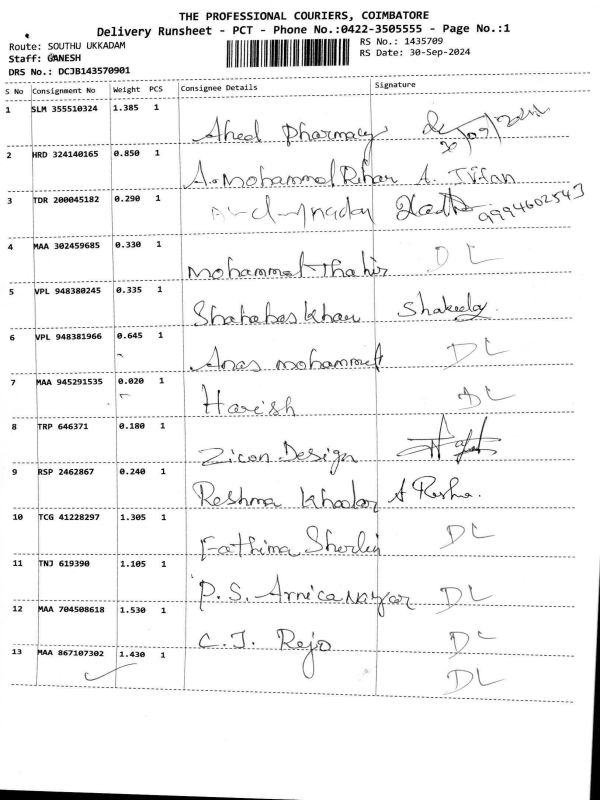 THE PROFESSIONAL COURIERS, COIMBATORE
Delivery Runsheet - PCT - Phone No.:0422-3505555 - Page No.:1
Route: SOUTHU UKKADAM
RS No.: 1435709
Staff: GANESH
RS Date: 30-Sep-2024
DRS No.: DCJB143570901
S No Consignment No Weight PCS Consignee Details Signature
1 SLM 355510324 1.385 1
Ahed Pharmacy
2 HRD 324140165 0.850 1
A. Mohammed A. Irfan
3 TDR 200045182 0.290 1
9994602543
4 MAA 302459685 0.330 1
Mohammed Thahir DL
5 VPL 948380245 0.335 1
Shahabas Khan
6 VPL 948381966 0.645 1
Anas mohammed DL
7 MAA 945291535 0.020 1
Harish DL
8 TRP 646371 0.180 1
Zicon Design
9 RSP 2462867 0.240 1
Reshma Khadar
10 TCG 41228297 1.305 1
Fathima Sherlin DL
11 TNJ 619390 1.105 1
P.S. Arnica Nayar DL
12 MAA 704508618 1.530 1
C.J. Rejo DL
13 MAA 867107302 1.430 1
DL